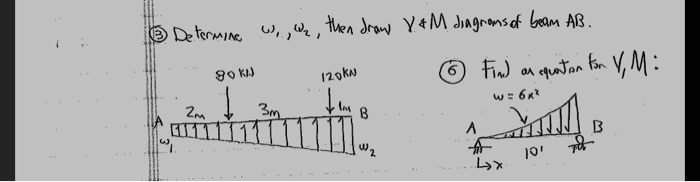 ③ Determine w₁, w₂, then draw V & M diagrams of beam AB.
80 KN
120 KN
2m
3m
1m
A
B
w₁
w₂
⑥ Find an equation for V, M :
w = 6x²
A
B
x
10'